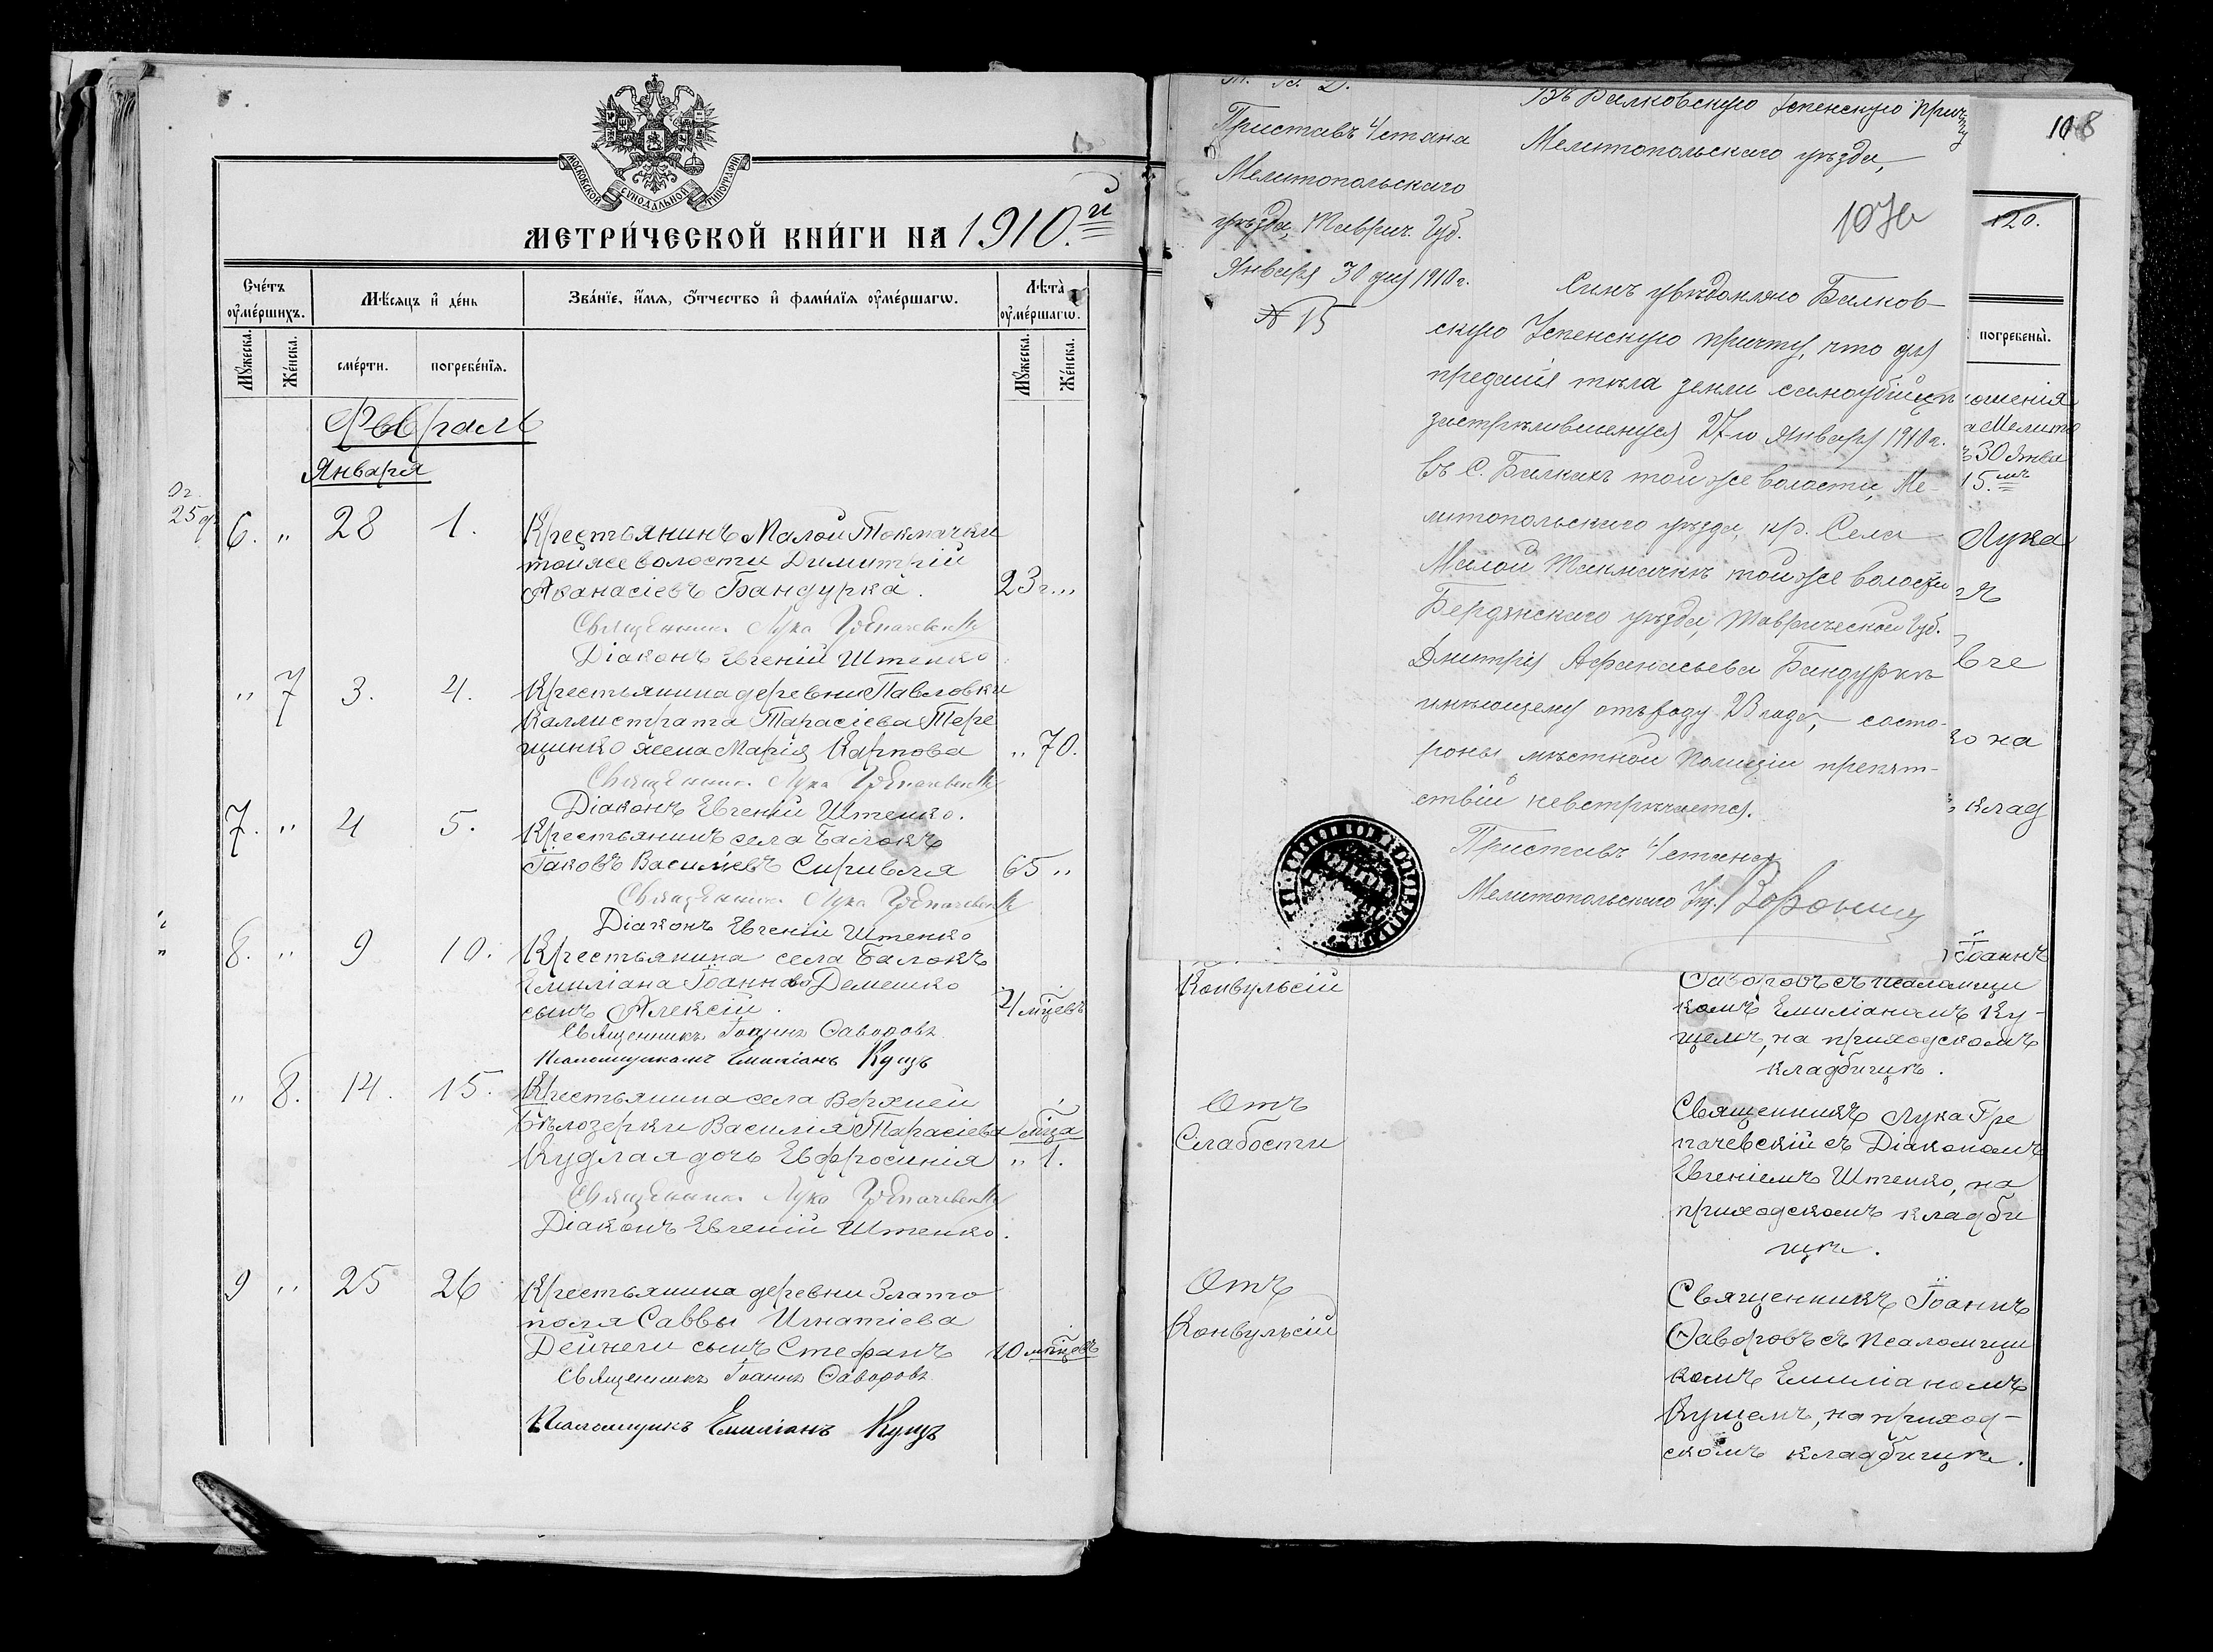 МОСКОВСКОЙ СУНОДАЛЬНОЙ ТИПОГРАФІИ
МЕТРИ́ЧЕСКОЙ КНИ́ГИ НА 1910.й
Счéтъ ᲂу҆мéршихъ.
Мѣ́сяцъ и҆ де́нь
Зва́нїе, и҆́мя, ѻ҆́тчество и҆ фами́лїя ᲂу҆ме́ршагѡ.
Лѣта̀ ᲂу҆ме́ршагѡ.
Мꙋ́жеска.
Же́нска.
сме́рти.
погребе́нїя.
Мꙋ́жеска.
Же́нска.
Февраль
Января
25
6. " 28 1. Крестьянинъ Малой Токмачки
тойже волости Димитрій
Аѳанасіевъ Бандурка. 23 г. "
Священникъ Лука Грепачевскій
Діаконъ Евгеній Штепко
" 7 3. 4. Крестьянина деревни Павловки
Каллистрата Тарасіева Тере
щинко жена Марія Карпова " 70.
Священникъ Лука Грепачевскій
Діаконъ Евгеній Штепко.
7. " 4 5. Крестьянинъ села Балокъ
Іаковъ Васильевъ Сиривля 65 "
Священникъ Лука Грепачевскій
Діаконъ Евгеній Штепко
8. " 9 10. Крестьянина села Балокъ
Емиліана Іоаннова Демешко
сынъ Алексій. 4 мѣцевъ
Священникъ Іоаннъ Ѳаворовъ
Псаломщикъ Емиліанъ Кущъ
" 8. 14. 15. Крестьянина села Верхней
Бѣлозерки Василія Тарасіева мѣца
Кудлая дочь Евфросинія " 1.
Священникъ Лука Грепачевскій
Діаконъ Евгеній Штепко.
9 " 25 26 Крестьянина деревни Злато
поля Саввы Игнатіева
Дейнеги сынъ Стефанъ 10 мѣцевъ
Священникъ Іоаннъ Ѳаворовъ
Псаломщикъ Емиліанъ Кущъ
Приставъ 4 стана
Мелитопольскаго
уѣзда, Таврич. Губ.
Января 30 дня 1910 г.
№ 15
Въ Балковскую Успенскую Причту
Мелитопольскаго уѣзда,
107а
Симъ увѣдомляю Балков-
скую Успенскую причту, что для
преданія тѣла земли самоубійцѣ
застрѣлившемуся 27-го Января 1910 г.
въ С. Балкахъ той же волости, Ме-
литопольскаго уѣзда, кр. Села
Малой Такмачкѣ той же волости
Бердянскаго уѣзда, Таврической Губ.
Дмитрія Афанасьева Бандуркѣ
имѣющему отъ роду 23 года, состо-
роны мѣстной Полиціи препят-
ствій невстрѣчается.
Приставъ 4 стана
Мелитопольскаго Уѣз. Воронин
108
120.
погребены̀.
ошенія
а Мелито
30 Янва
15.мъ
Лука
вче
ко на
клад
Іоаннъ
Конвульсій
Ѳаворовъ съ псаломщи
комъ Емиліаномъ Ку-
щемъ, на приходскомъ
кладбищѣ.
Отъ
Слабости
Священникъ Лука Гре
пачевскій съ Діакономъ
Евгеніемъ Штепко, на
приходскомъ кладби
щѣ.
Отъ
Конвульсій
Священникъ Іоаннъ
Ѳаворовъ съ псаломщи
комъ Емиліаномъ
Кущемъ, на приход-
скомъ кладбищѣ.